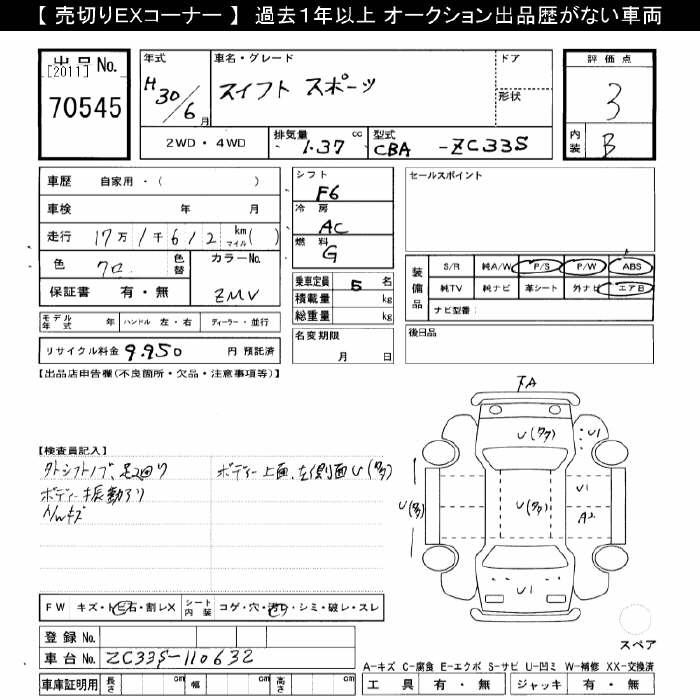 【 売切りEXコーナー 】 過去1年以上 オークション出品歴がない車両
出品 No.
[2011]
70545
年式
H30/6月
車名・グレード
スイフト スポーツ
ドア
形状
2WD・4WD
排気量 1.37 cc
型式 CBA -ZC33S
評価点
3
内装 B
車歴 自家用・( )
車検 年 月
走行 17万1千612 km マイル( )
色 クロ 色替
カラーNo. ZMV
保証書 有・無
モデル年式 年 ハンドル 左・右 ディーラー・並行
リサイクル料金 9.950 円 預託済
シフト F6
冷房 AC
燃料 G
乗車定員 5 名
積載量 kg
総重量 kg
名変期限 月 日
セールスポイント
装備品
S/R 純A/W P/S P/W ABS
純TV 純ナビ 革シート 外ナビ エアB
ナビ型番:
後日品
【出品店申告欄(不良箇所・欠品・注意事項等)】
【検査員記入】
外シフトノブ、足廻り
ボディー振動アリ
A/Wキズ
ボディー上面、左側面U(多)
FW キズ・トビ石・割レX シート内装 コゲ・穴・汚レ・シミ・破レ・スレ
登録 No.
車台 No. ZC33S-110632
車庫証明用 長さ cm 幅 cm 高さ cm
U(多)
U1
U(多)
U(多)
U1
A2
U1
スペア
A-キズ C-腐食 E-エクボ S-サビ U-凹ミ W-補修 XX-交換済
工具 有・無 ジャッキ 有・無